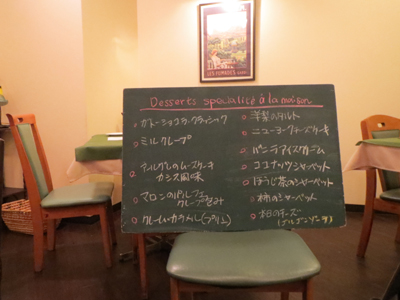 Desserts spécialité à la maison
ガトーショコラ・クラッシック
ミルクレープ
アールグレのムースケーキ
カシス風味
マロンのパルフェ
クレープ包み
クレーム・カラメル(プリン)
洋梨のタルト
ニューヨークチーズケーキ
バニラアイスクリーム
ココナッツシャーベット
ほうじ茶のシャーベット
柿のシャーベット
本日のチーズ
(ゴルゴンゾーラ)